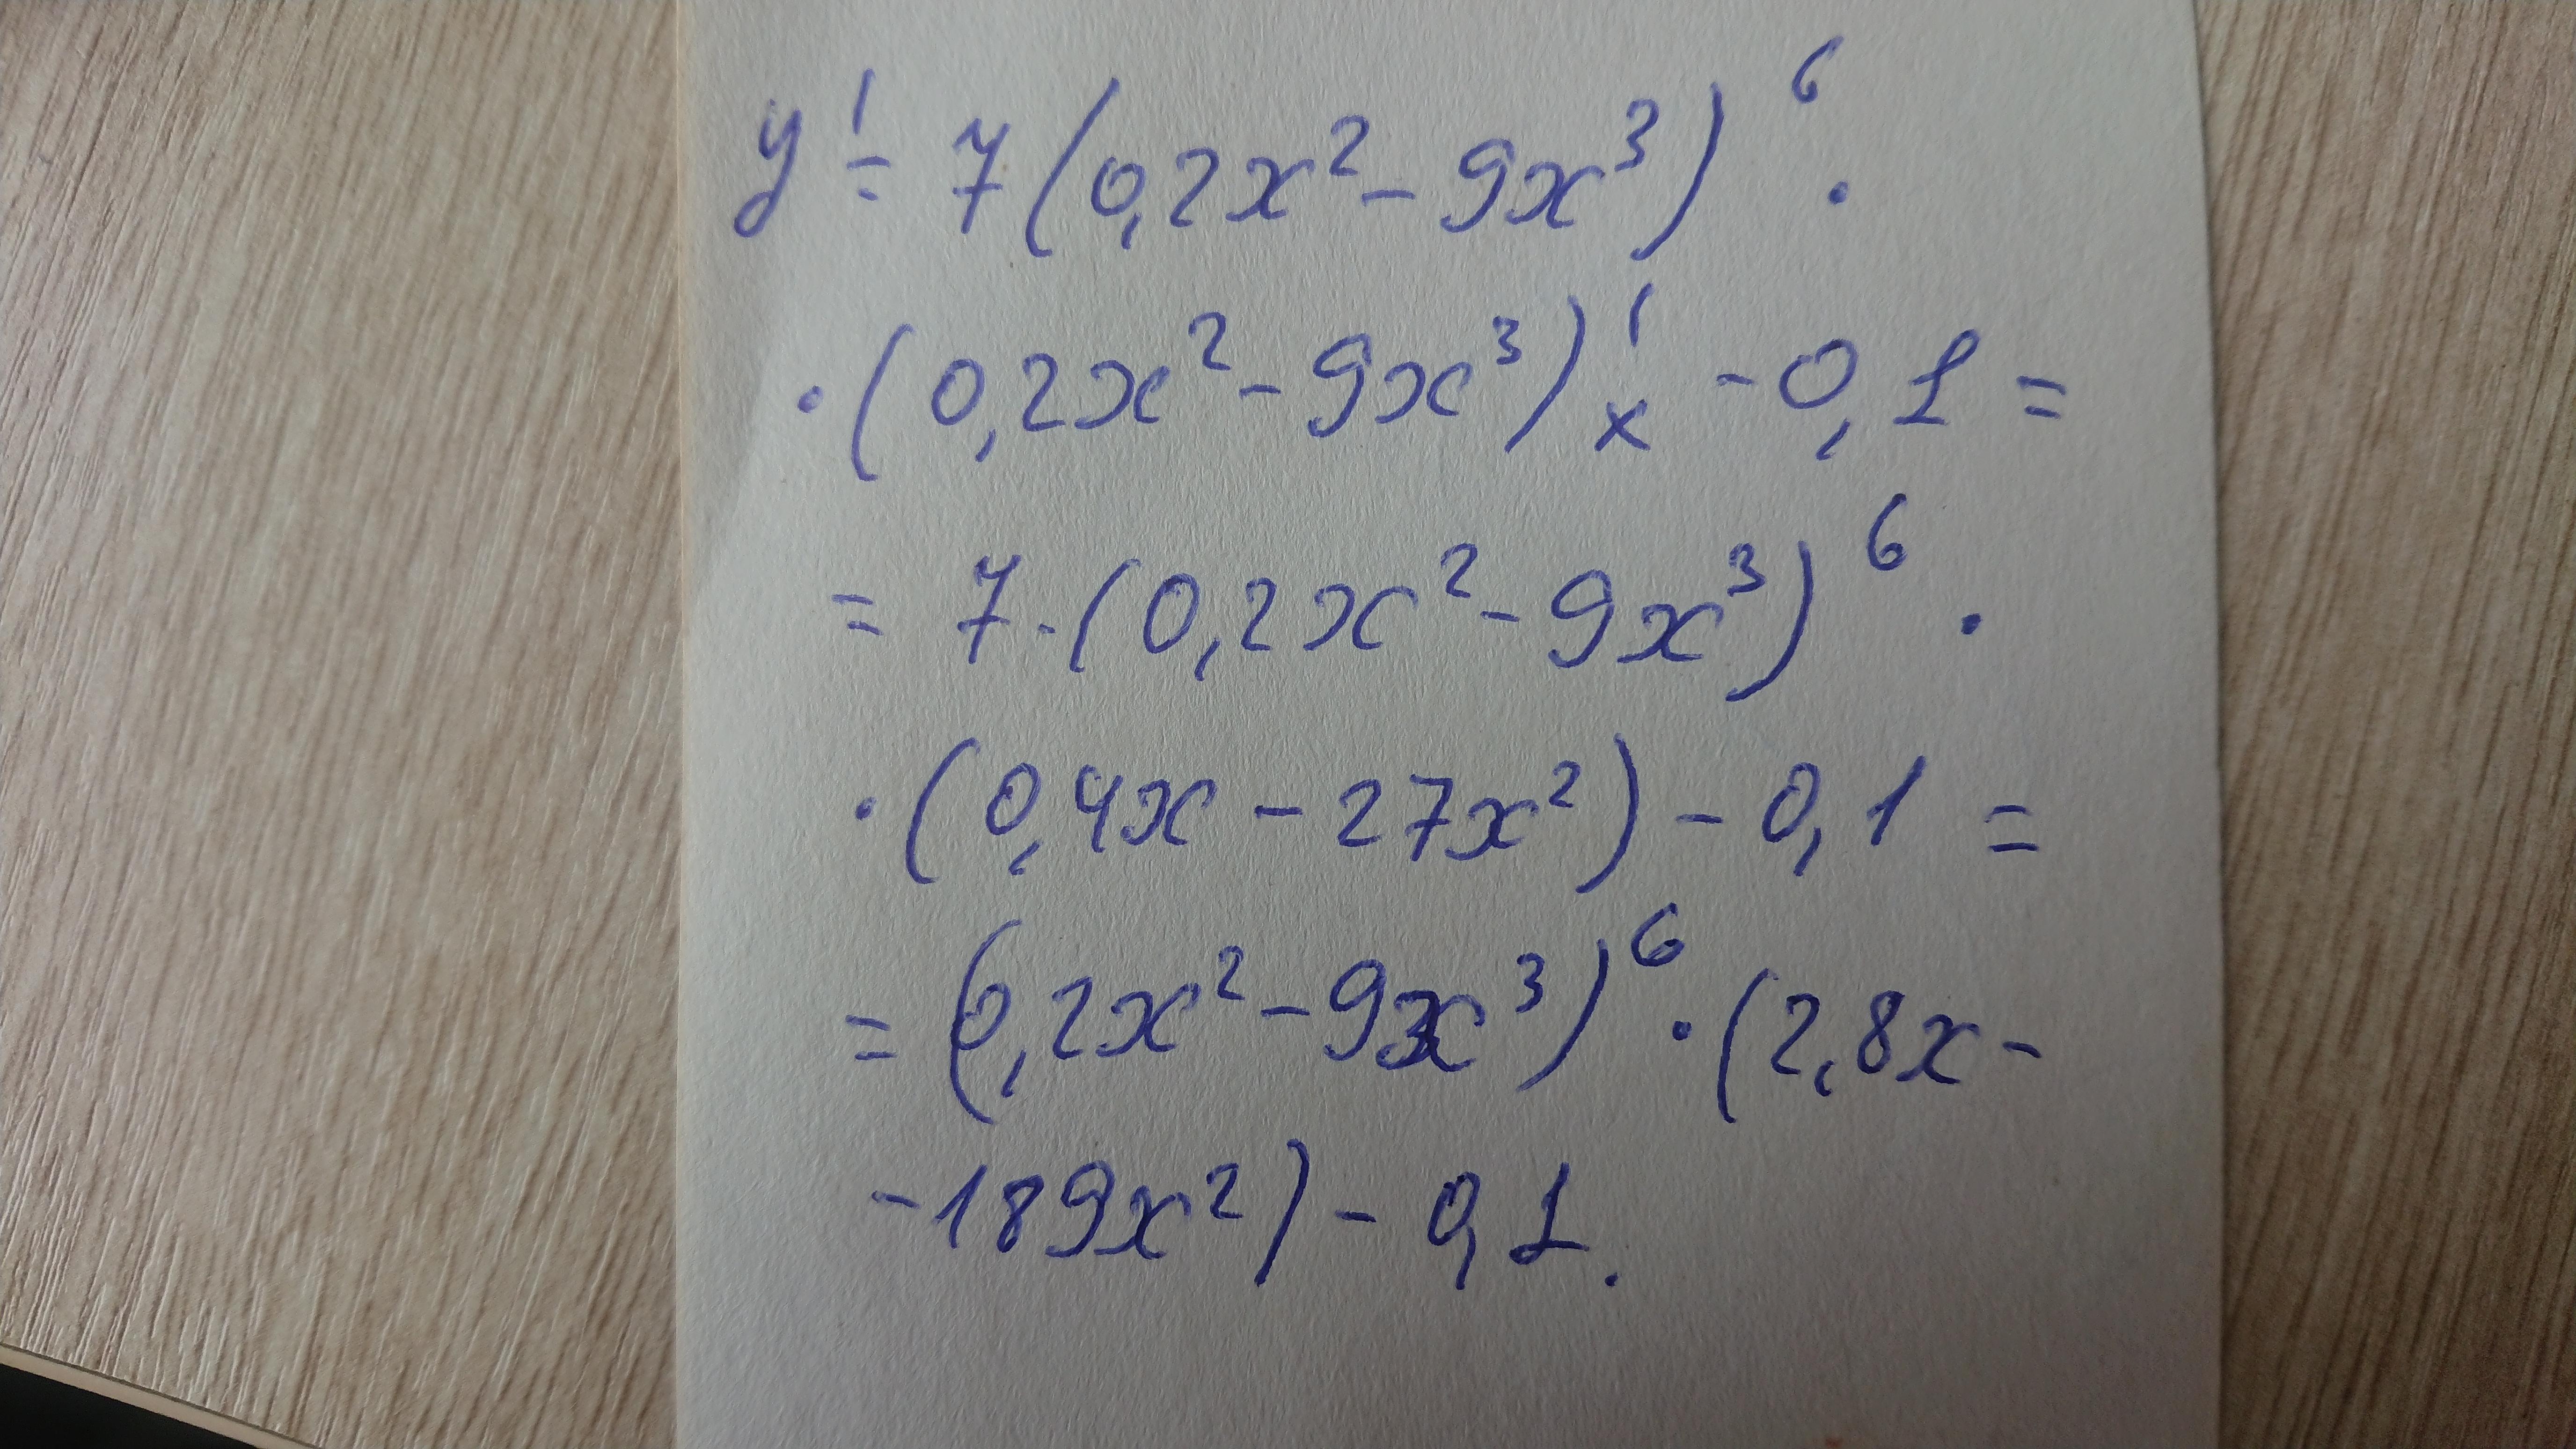 y' = 7(0,2x² - 9x³)⁶ ·
· (0,2x² - 9x³)'ₓ - 0,1 =
= 7 · (0,2x² - 9x³)⁶ ·
· (0,4x - 27x²) - 0,1 =
= (0,2x² - 9x³)⁶ · (2,8x -
- 189x²) - 0,1.